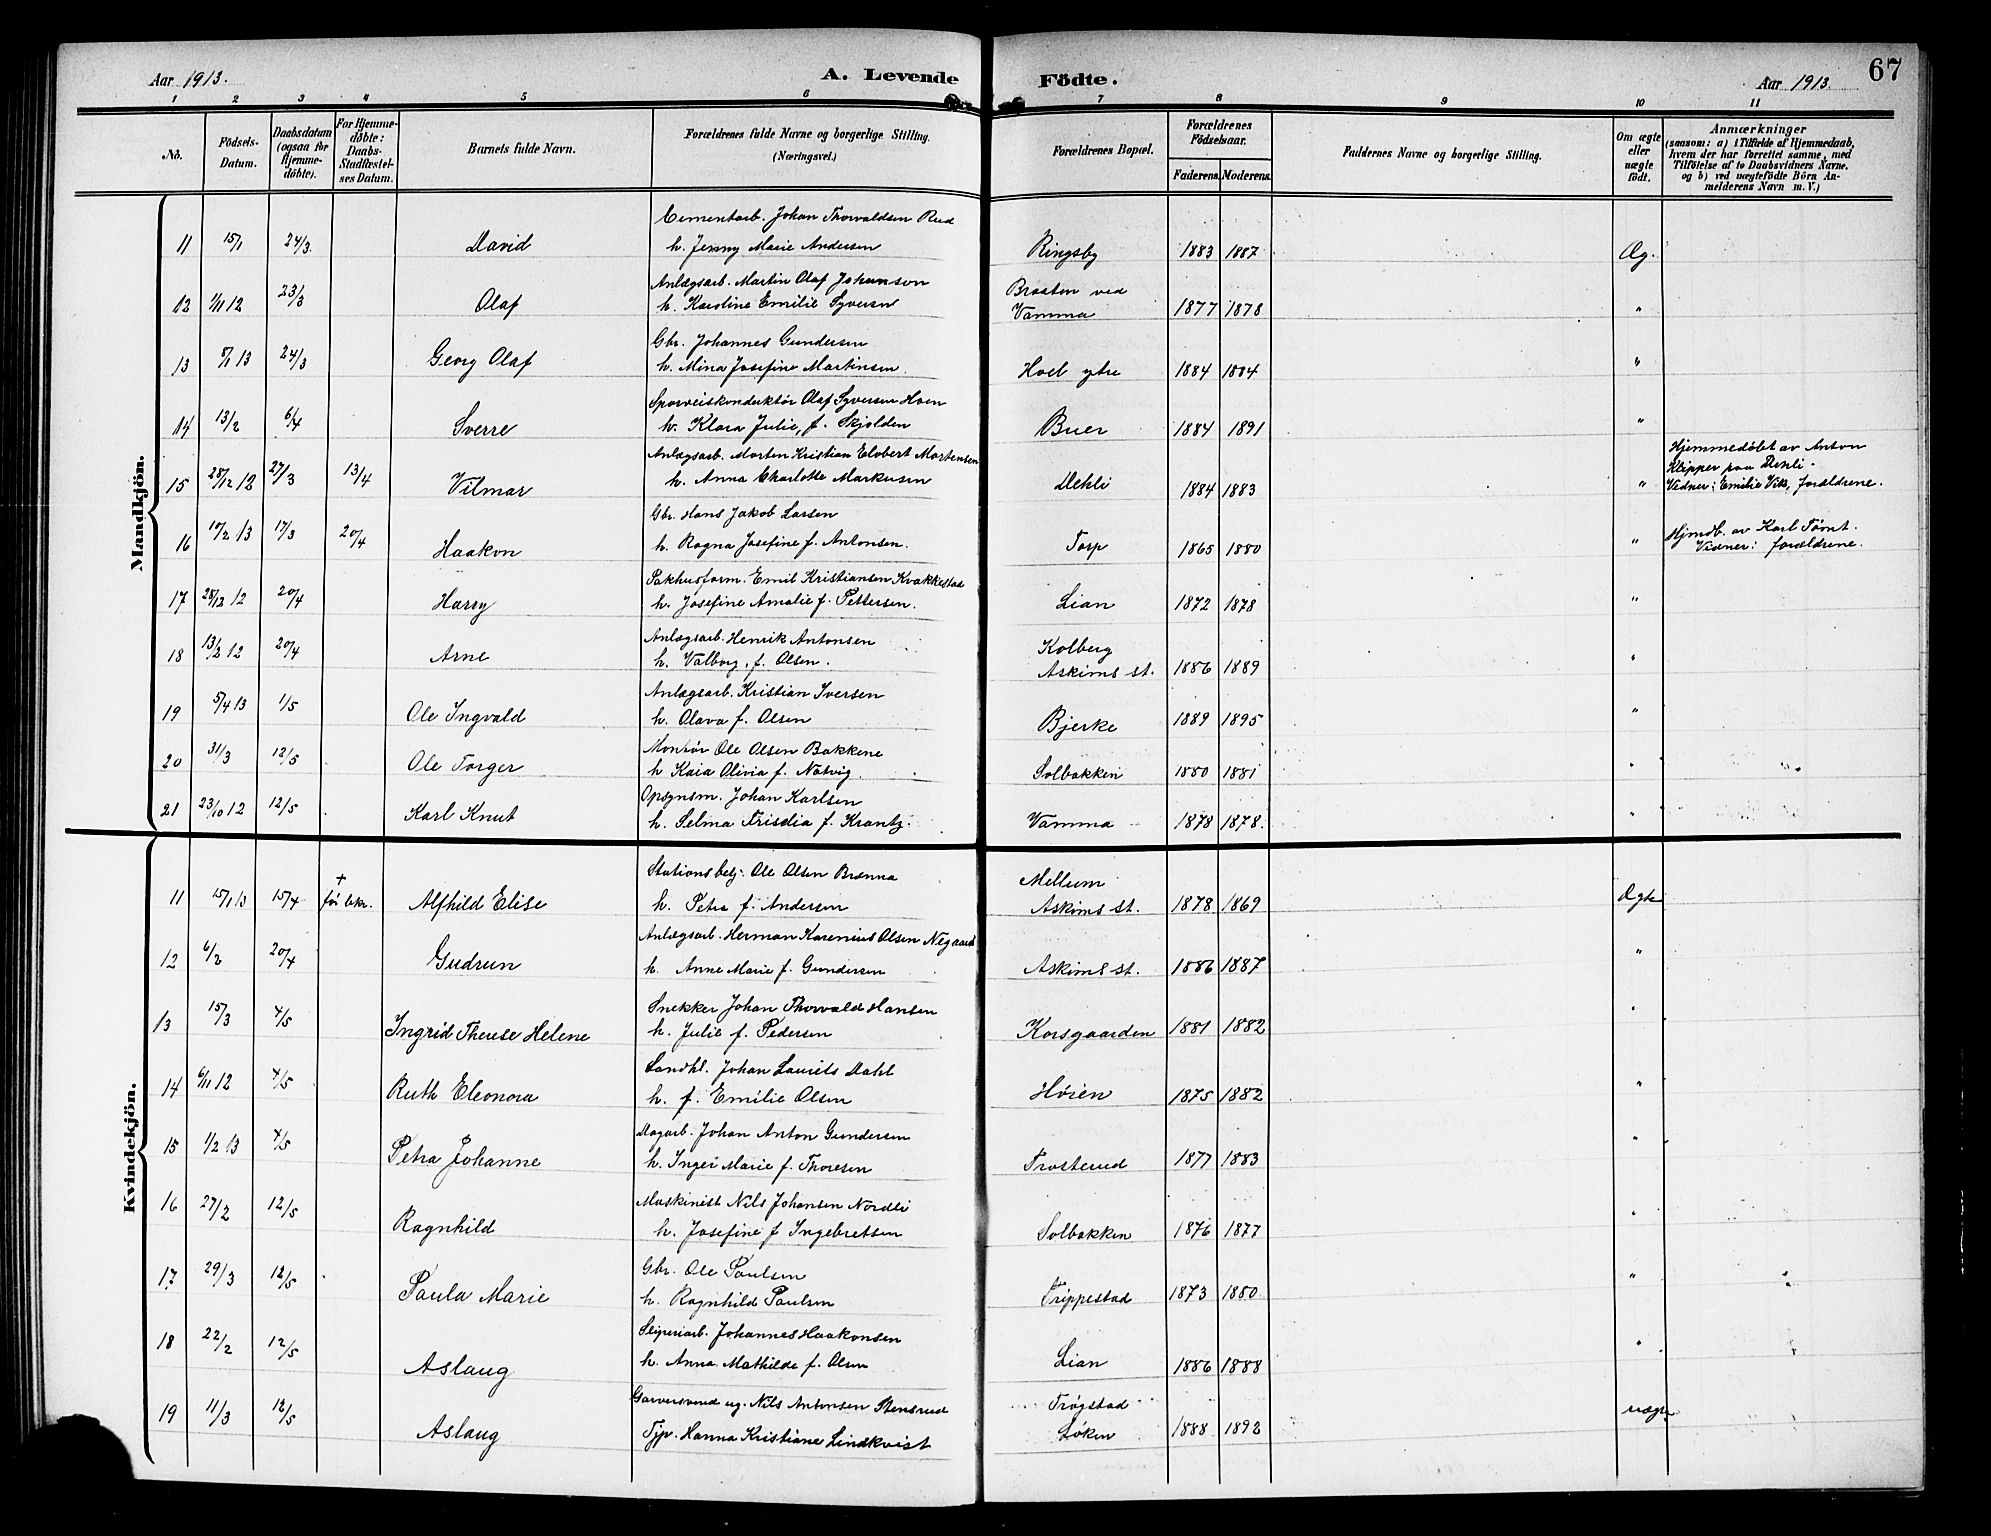 Aar 1913. A. Levende Födte. Aar 1913. 67
1 2 3 4 5 6 7 8 9 10 11
No. Födsels-Datum. Daabsdatum (ogsaa for Hjemme-döbte). For Hjemme-döbte: Daabs-Stadfæstel-ses Datum. Barnets fulde Navn. Forældrenes fulde Navne og borgerlige Stilling. (Næringsvei.) Forældrenes Bopæl. Forældrenes Födselsaar. Faderens. Moderens. Faddernes Navne og borgerlige Stilling. Om ægte eller uægte födt. Anmærkninger (saasom: a) i Tilfælde af Hjemmedaab, hvem der har forrettet samme, med Tilföielse af to Daabsvidners Navne. og b) ved uægtefödte Börn An-melderens Navn m. V.)
Mandkjön.
Cementarb. Johan Thorvaldsen Rud
11 15/1 24/3. David h. Jenny Marie Andersen Ringsby 1883 1887 Æg.
Anlægsarb. Martin Olaf Johansson Braaten ved
12 1/11 12 23/3 Olaf h. Karoline Emilie Syversen Vamma 1877 1878 "
Gbr. Johannes Gundersen
13 5/1 13 24/3 Georg Olaf h. Mina Josefine Martinsen Hoel ytre 1884 1884 "
Sporveiskonduktør Olaf Syversen Hoen
14 13/2 6/4 Sverre h. Klara Julie, f. Skjolden Buer 1884 1891 "
Anlægsarb. Morten Kristian Elobert Mortensen Hjemmedøbt av Anton Klipper paa Dehli.
15 28/12 12 27/3 13/4 Vilmar h. Anna Charlotte Markusen Dehli 1884 1883 " Vidner: Emilie Vik, forældrene.
Gbr. Hans Jakob Larsen Hjmdb. av Karl Tømt.
16 10/2 13 17/3 20/4 Haakon h. Ragna Josefine f. Antonsen. Torp 1865 1880 " Vidner: forældrene.
Pakhusform. Emil Kristiansen Kvakkestad
17 28/12 12 20/4 Harry h. Josefine Amalie f. Pettersen. Lian 1872 1878 "
Anlægsarb. Henrik Antonsen Kolberg
18 13/2 12 20/4 Arne h. Valborg, f. Olsen. Askims st. 1886 1889 "
Anlægsarb. Kristian Iversen
19 5/4 13 1/5 Ole Ingvald h. Olava f. Olsen Bjerke 1889 1895 "
Montør Ole Olsen Bakkene
20 31/3 12/5 Ole Torger h Kaia Olivia f. Natvig. Solbakken 1880 1881 "
Opsynsm. Johan Karlsen
21 23/10 12 12/5 Karl Knut h. Selma Frisdia f. Krantz. Vamma 1878 1878. "
Kvindekjön.
Stationsbetj. Ole Olsen Brænna Mellum
11 15/1 13 15/4 + før bekr. Alfhild Elise h. Petra f. Andersen Askims st. 1878 1869 Ægte
Anlægsarb. Herman Karenius Olsen Negaard
12 6/2 20/4 Gudrun h. Anne Marie f. Gundersen Askims st. 1886 1887 "
Snekker Johan Thorvald Hansen
13 15/3 4/5 Ingrid Therese Helene h. Julie f. Pedersen Korsgaarden 1881 1882 "
Landhl. Johan Laurits Dahl
14 6/11 12 4/5 Ruth Eleonora h. f. Emilie Olsen Høien 1875 1882 "
Dagarb. Johan Anton Gundersen
15 1/2 13 4/5 Petra Johanne h. Inger Marie f. Thoresen Trosterud 1877 1883 "
Maskinist Nils Johansen Nordli
16 27/2 12/5 Ragnhild h. Josefine f Ingebretsen Solbakken 1876 1877 "
Gbr. Ole Paulsen
17 29/3 12/5 Paula Marie h. Ragnhild Paulsen Trippestad 1873 1880 "
Sliperiarb. Johannes Haakonsen
18 22/2 12/5 Aslaug h. Anna Mathilde f. Olsen Lian 1886 1888 "
Garversvend ug. Nils Antonsen Stensrud Trøgstad
19 11/3 12/5 Aslaug Tjp. Hanna Kristiane Lindkvist Løken 1888 1892 uægte